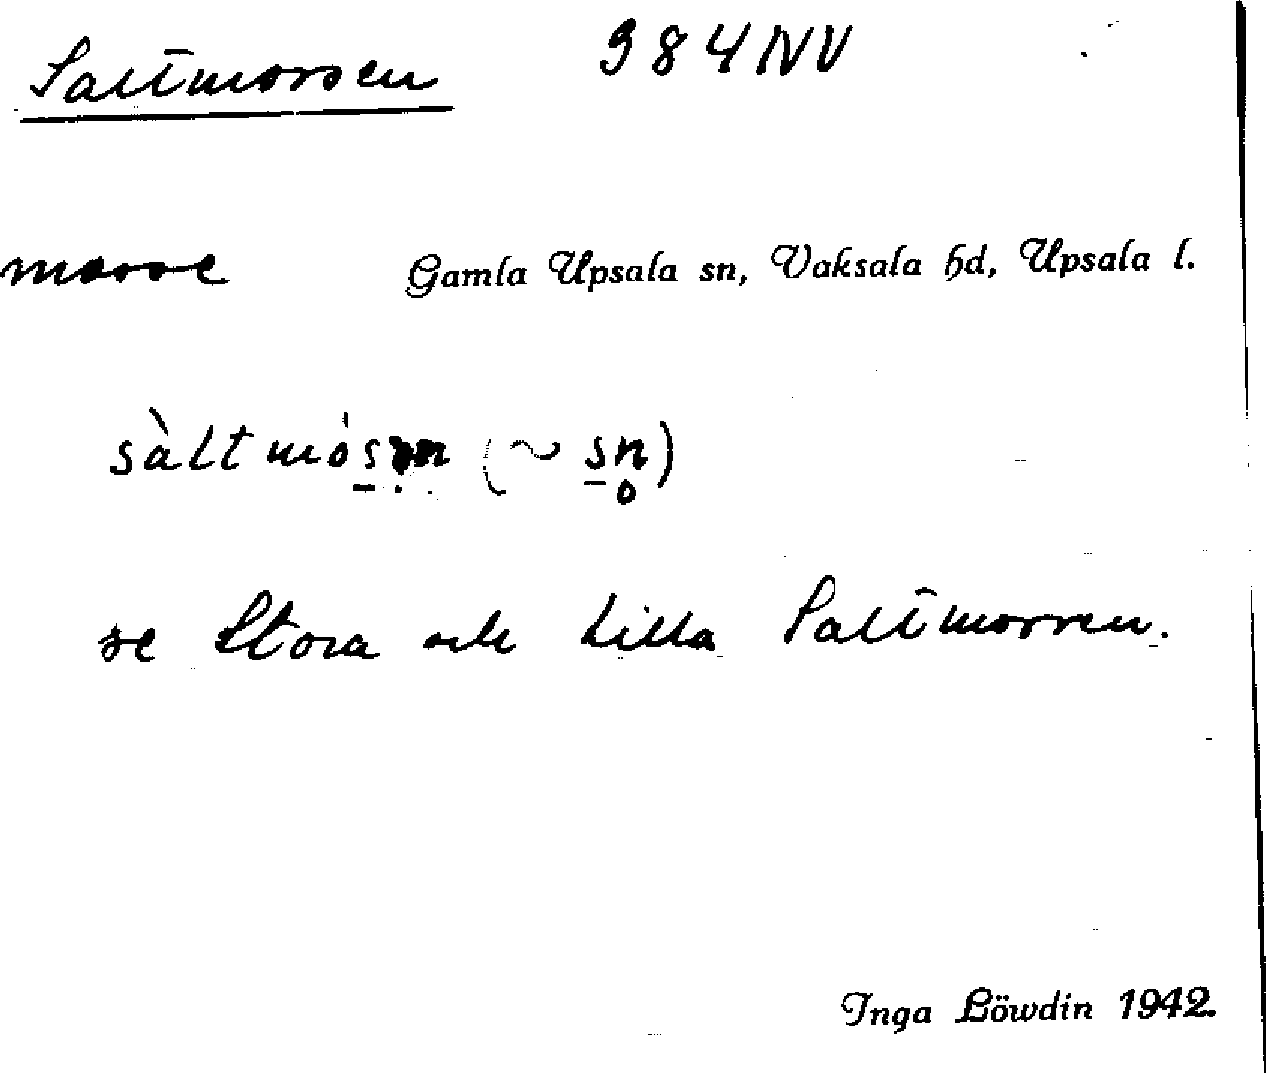 Saltmorsen 984 NV
mosse Gamla Upsala sn, Vaksala hd, Upsala l.
sàltmósn (~ sn)
se Stora och Lilla Saltmossen.
Inga Löwdin 1942.